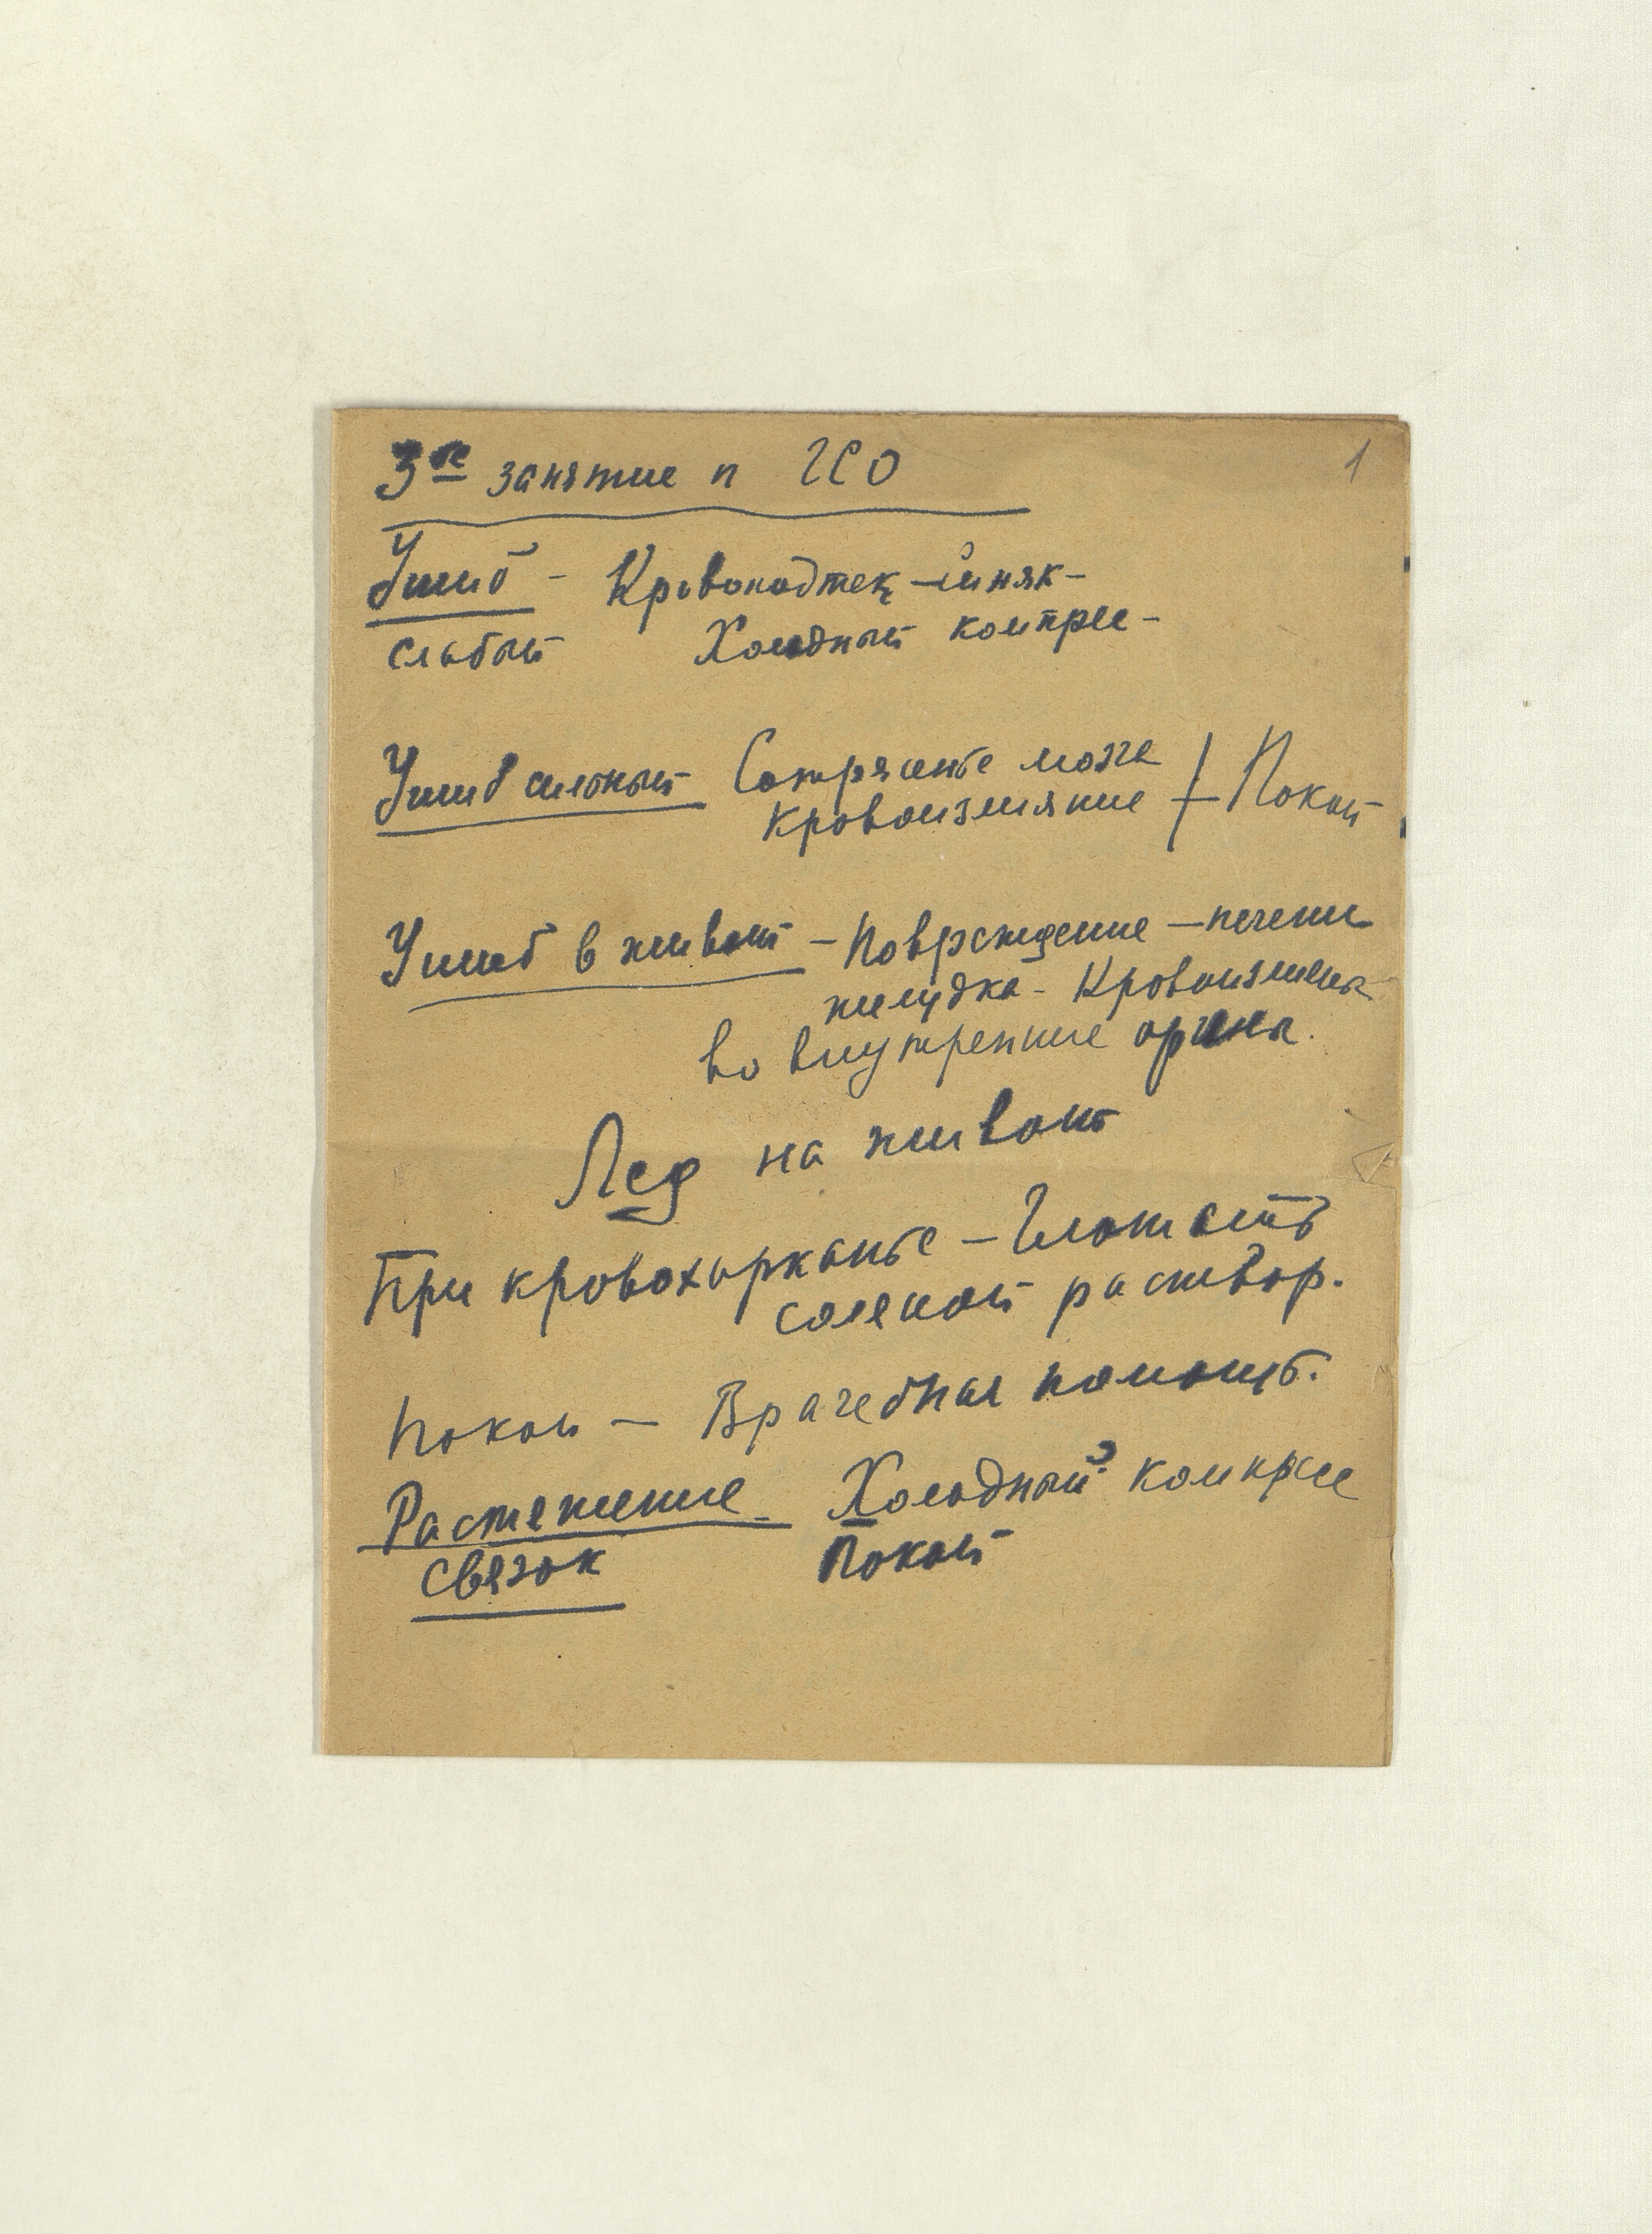 3ье занятие п ГСО
1
Ушиб - Кровоподтек - синяк -
слабый Холодный компрес -
Ушиб сильный Сотрясенье мозга
Кровоизлияние - Покой
Ушиб в живот - Повреждение - печени
желудка - Кровоизлиянье
во внутренние органы.
Лед на живот
При кровохарканье - Глотать
соляной раствор.
Покой - Врачебная помощь.
Растяжение - Холодный компресс
связок Покой